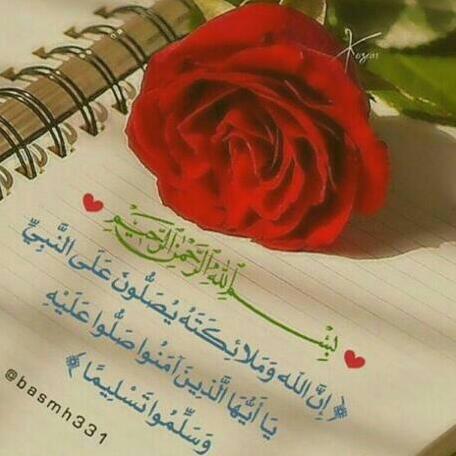 بِسْمِ اللَّهِ الرَّحْمَٰنِ الرَّحِيمِ
﴿إِنَّ اللَّهَ وَمَلَائِكَتَهُ يُصَلُّونَ عَلَى النَّبِيِّ
يَا أَيُّهَا الَّذِينَ آمَنُوا صَلُّوا عَلَيْهِ
وَسَلِّمُوا تَسْلِيمًا﴾
@basmh331